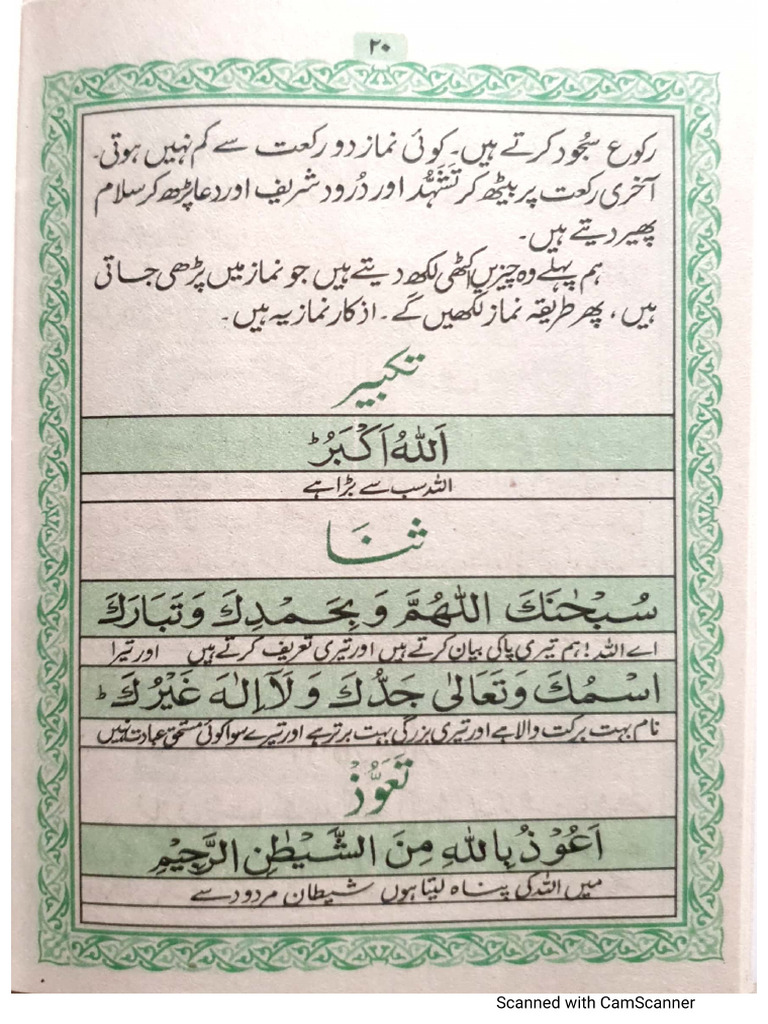 ۲۰
رکوع سجُود کرتے ہیں۔ کوئی نماز دو رکعت سے کم نہیں ہوتی۔
آخری رکعت پر بیٹھ کر تَشَہُّد اور دُرود شریف اور دعا پڑھ کر سلام
پھیر دیتے ہیں۔
ہم پہلے وہ چیزیں اکٹھی لکھ دیتے ہیں جو نماز میں پڑھی جاتی
ہیں، پھر طریقہ نماز لکھیں گے۔ اذکار نماز یہ ہیں۔
تکبیر
اَللّٰهُ اَكْبَرُؕ
اللہ سب سے بڑا ہے
ثَنَا
سُبْحٰنَكَ اللّٰهُمَّ وَبِحَمْدِكَ وَتَبَارَكَ
اے اللہ! ہم تیری پاکی بیان کرتے ہیں اور تیری تعریف کرتے ہیں اور تیرا
اسْمُكَ وَتَعَالٰى جَدُّكَ وَلَآ اِلٰهَ غَيْرُكَؕ
نام بہت برکت والا ہے اور تیری بزرگی بہت برتر ہے اور تیرے سوا کوئی مستحق عبادت نہیں
تَعَوُّذْ
اَعُوْذُ بِاللّٰهِ مِنَ الشَّيْطٰنِ الرَّجِيْمِ
میں اللہ کی پناہ لیتا ہوں شیطان مردود سے
Scanned with CamScanner